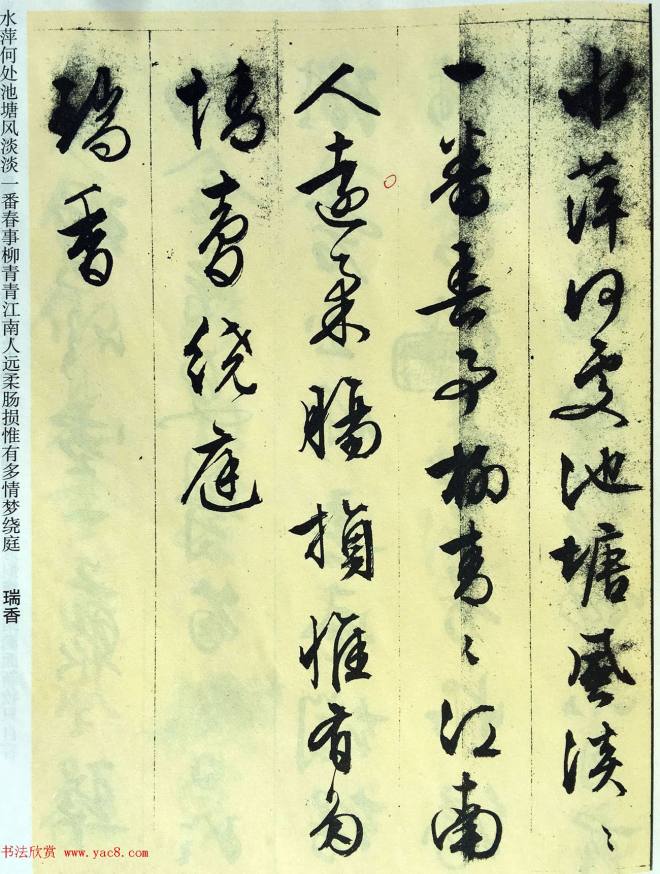 水萍何处池塘风淡〻
一番春事柳青〻江南
人远柔肠损惟有多
情梦绕庭
瑞香
水萍何处池塘风淡淡一番春事柳青青江南人远柔肠损惟有多情梦绕庭
瑞香
书法欣赏 www.yac8.com